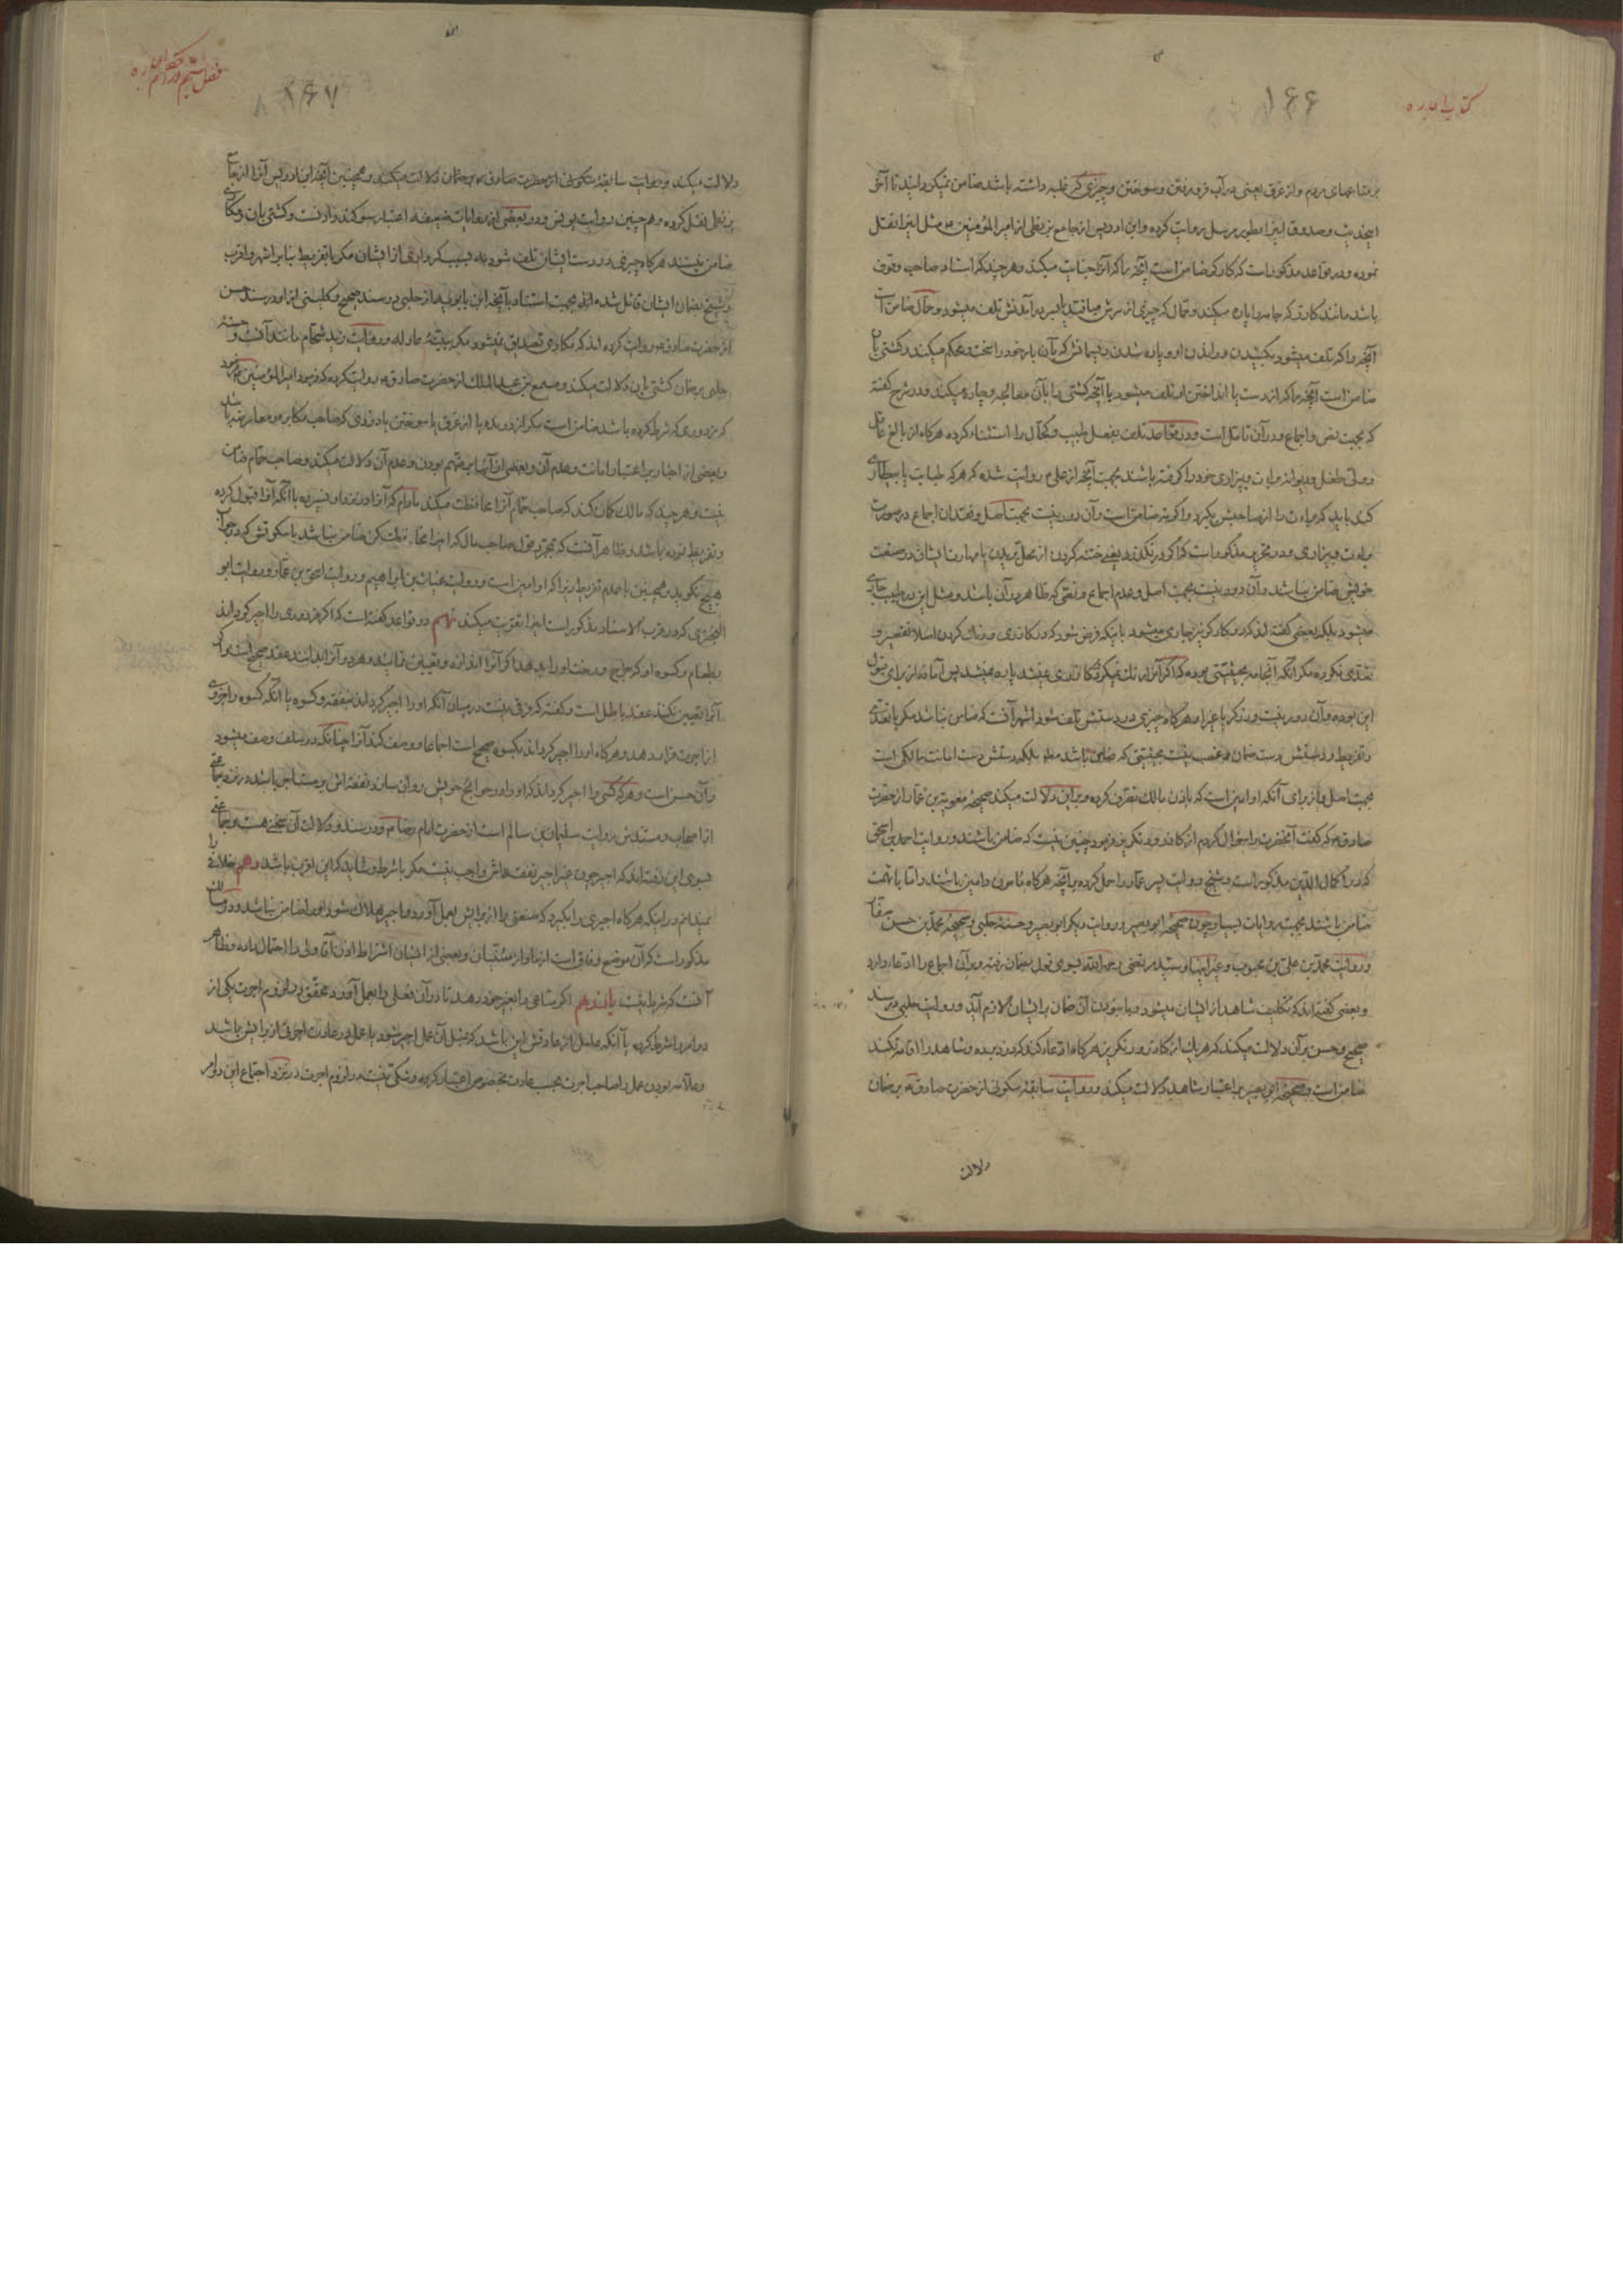 کتاب اجاره
۱۶۶
بر متاعهای مردم و از غرق یعنی در آب فرو رفتن و سوختن و چیزی که غلبه داشته باشد ضامن نمیگردانید تا آخر
ایحدیث و صدوق اینرا بطور مرسل روایت کرده و ابن ادریس از جامع بزنطی از امیر المؤمنین ع مثل اینرا نقل
نموده و در قواعد مذکور است که کارگر ضامن است آنچه را که آنرا جنایت میکند و هر چند که استاد صاحب وقوف
باشد مانند کازر که جامه را پاره میکند و حمال که چیزی از سرش میافتد یا بسر در آمدنش تلف میشود و جمال ضامن است
آنچه را که تلف میشود بکشیدن و راندن او و پاره شدن ریسمانش که بآن بار خود را سخت و محکم میکند و کشتی بان
ضامن است آنچه را که از دست یا انداختن او تلف میشود یا آنچه کشتی را بآن معالجه و چاره میکند و در شرح گفته
که بجهت نص و اجماع و در آن تامل است و در قواعد تلف بفعل طبیب و کحال را استثناء کرده هرگاه از بالغ عاقل
و ولی طفل و دیوانه برات و بیزاری خود را گرفته باشند بجهت آنچه از علی ع روایت شده که هر که طبابت یا بیطاری
کند باید که براءت را از صاحبش بگیرد و اگر نه ضامن است و آن دور نیست بجهت اصل و فقدان اجماع در صورت
براءت و بیزاری و در تحریر مذکور است که اگر در نگذرد بتیغ ختنه کردن از محل بریدن با مهارت ایشان در صنعت
خویش ضامن نباشد و آن دور نیست بجهت اصل و عدم اجماع و نصی که ظاهر در آن باشد و مثل این در طبیب جاری
میشود بلکه بعضی گفته اند که در کارگر نیز جاری میشود باینکه فرض شود که در کازری و رنگ کردن اصلا تقصیر و
تعدی نکرده مگر آنکه آنجامه بحیثیتی بوده که اگر آنرا رنگ نمیکرد و کازری نمیشد پاره نمیشد پس آماده از برای قبول
این بوده و آن دور نیست و زرگر یا غیر او هرگاه چیزی در دستش تلف شود اشهر آنست که ضامن نباشد مگر با تعدی
و تفریط و دستش دست ضمان و غصب نیست بحیثیتی که ضامن باشد مط بلکه دستش دست امانت مالکی است
بجهت اصل و از برای آنکه او امین است که باذن مالک تصرف کرده و بر این دلالت میکند صحیحه معویة بن عمار از حضرت
صادق ع که گفت آنحضرت را سؤال کردم از کازر و رنگرز فرمود چنین نیست که ضامن باشند و روایت احمد بن اسحق
که در اکمال الدین مذکور است و شیخ روایت پسر عمار را حمل کرده بر آنچه هرگاه مامون و امین باشند و اما با تهمت
ضامن باشند بجهت روایات بسیار چون صحیحه ابو بصیر و روایت دیگر ابو بصیر و حسنه حلبی و صحیحه محمد بن حسن صفار
و روایت محمد بن علی بن محبوب و غیر اینها و سید مرتضی رحمه الله بسوی قول بضمان رفته و بر آن اجماع را ادعاء دارد
و بعضی گفته اند که تکلیف شاهد از ایشان میشود و با نبودن آن ضمان بر ایشان لازم آید و روایت حلبی در سند
صحیح و حسن بر آن دلالت میکند که هر یک از کازر و رنگرز هرگاه ادعاء کند که دزدیده و شاهد را اقامه نکند
ضامن است و صحیحه ابو بصیر بر اعتبار شاهد دلالت میکند و روایت سابقه سکونی از حضرت صادق ع بر ضمان
دلالت
فصل ششم در احکام اجاره
۱۶۷
دلالت میکند و روایت سابقه سکونی از حضرت صادق ع بر ضمان دلالت میکند و همچنین آنچه ابن ادریس آنرا از جامع
بزنطی نقل کرده و هم چنین روایت یونس و در بعضی از روایات ضعیفه اعتبار سوگند وارد است و کشتی بان و مکاری
ضامن نیستند هرگاه چیزی در دست ایشان تلف شود نه بسبب کرداری از ایشان مگر با تفریط بنابر اشهر و اقرب
و شیخ بضمان ایشان قائل شده اند بجهت استناد بآنچه ابن بابویه از حلبی در سند صحیح و کلینی از او در سند حسن
از حضرت صادق ع روایت کرده اند که مکاری تصدیق نمیشود مگر ببینه عادله و روایت زید شحام مانند آنست و حسنه
حلبی بر ضمان کشتی بان دلالت میکند و مسمع بن عبد الملک از حضرت صادق ع روایت کرده که فرمود امیر المؤمنین ع فرمود
که مزدوری که شرط کرده باشد ضامن است مگر از درنده یا از غرق یا سوختن یا دزدی که صاحب مکابره و معارضه باشد
و بعضی از اخبار بر اعتبار امانت و عدم آن و بعضی از آنها بر متهم بودن و عدم آن دلالت میکند و صاحب حمام ضامن
نیست و هر چند که مالک گمان کند که صاحب حمام آنرا محافظت میکند مادام که آنرا در نزد او نسپرده یا آنکه آنرا قبول کرده
و تفریط نموده باشد و ظاهر آنست که بمجرد قول صاحب مال که اینرا محافظت کن ضامن نباشد با سکوتش که در جواب
هیچ نگوید و همچنین با عدم تفریط زیرا که او امین است و روایت غیاث بن ابراهیم و روایت اسحق بن عمار و روایت ابو
البختری که در قرب الاسناد مذکور است اینرا تقویت میکند نهم در قواعد گفته است که اگر مزدوری را اجیر گرداند
بطعام و کسوه او که خرج و رخت او را بدهد اگر آنرا اندازه و تعیین نمایند و هر دو آنرا بدانند عقد صحیح است و اگر
آنرا تعیین نکند عقد باطل است و گفته که فرقی نیست در میان آنکه او را اجیر گرداند بنفقه و کسوه یا آنکه کسوه را جزوی
از اجرت قرار دهد و هرگاه او را اجیر گرداند بکسوه صحیح است اجماعا و وصف کند آنرا چنانکه در سلف وصف میشود
و آن حسن است و هر که کسی را اجیر گرداند که او را در حوائج خویش روان سازد نفقه اش بر مستاجر باشد در نزد جماعتی
از اصحاب و مستندش روایت سلیمان بن سالم است از حضرت امام رضا ع و در سند و دلالت آن سخنی هست و جماعتی
بسوی این رفته اند که اجیر چون غیر اجیر نفقه اش واجب نیست مگر با شرط و شاید که این اقرب باشد دهم خلافی را
نمیدانم در اینکه هرگاه اجیری را بگیرد که صنعتی را از برایش بعمل آورد و اجیر هلاک شود او را ضامن نباشد و در مسالک
مذکور است که آن موضع وفاق است از ما و از سنیان و بعضی از ایشان اشتراط اذن آقا و ولی را احتمال داده و ظاهر
آنست که شرط نیست یازدهم اگر متاعی را بغیر خود دهد تا در آن فعلی را بعمل آورد محقق در لزوم اجرت یکی از
دو امر را شرط کرده یا آنکه عامل از عادتش این باشد که بمثل آن عمل اجیر شود یا عمل در عادت اجرتی از برایش باشد
و علامه بودن عمل را صاحب اجرت بحسب عادت بخصوص اعتبار کرده و شکی نیست در لزوم اجرت در نزد اجتماع این دو امر